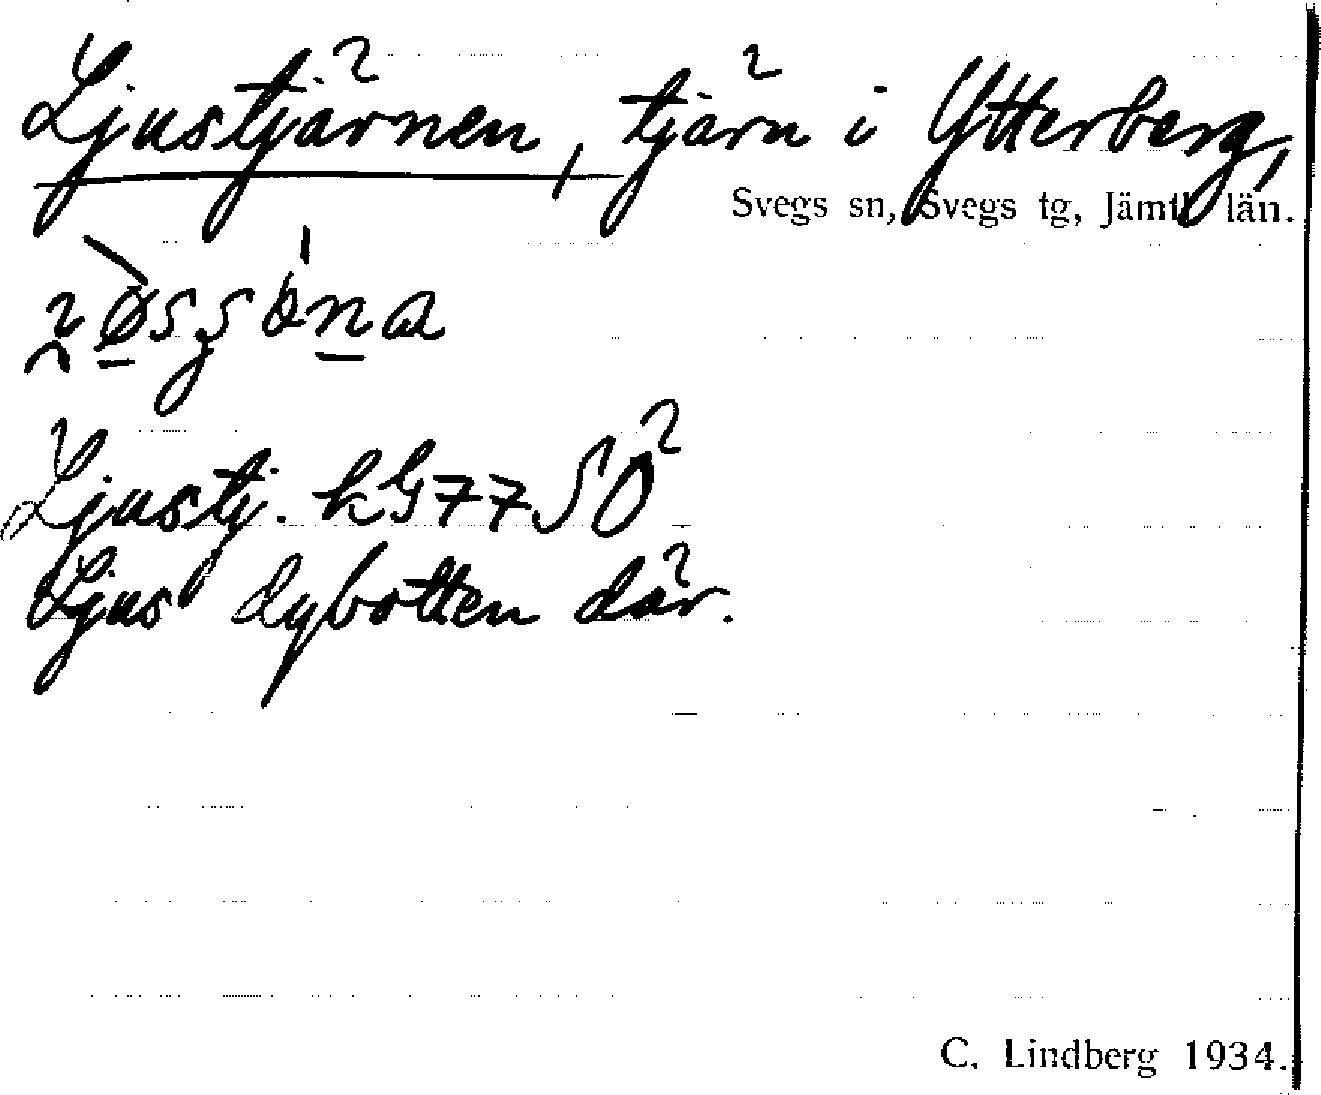 Ljustjärnen, tjärn i Ytterberg,
Svegs sn, Svegs tg, Jämtl. län.
Ljustj. kG77SÖ
Ljus dybotten där.
C. Lindberg 1934.